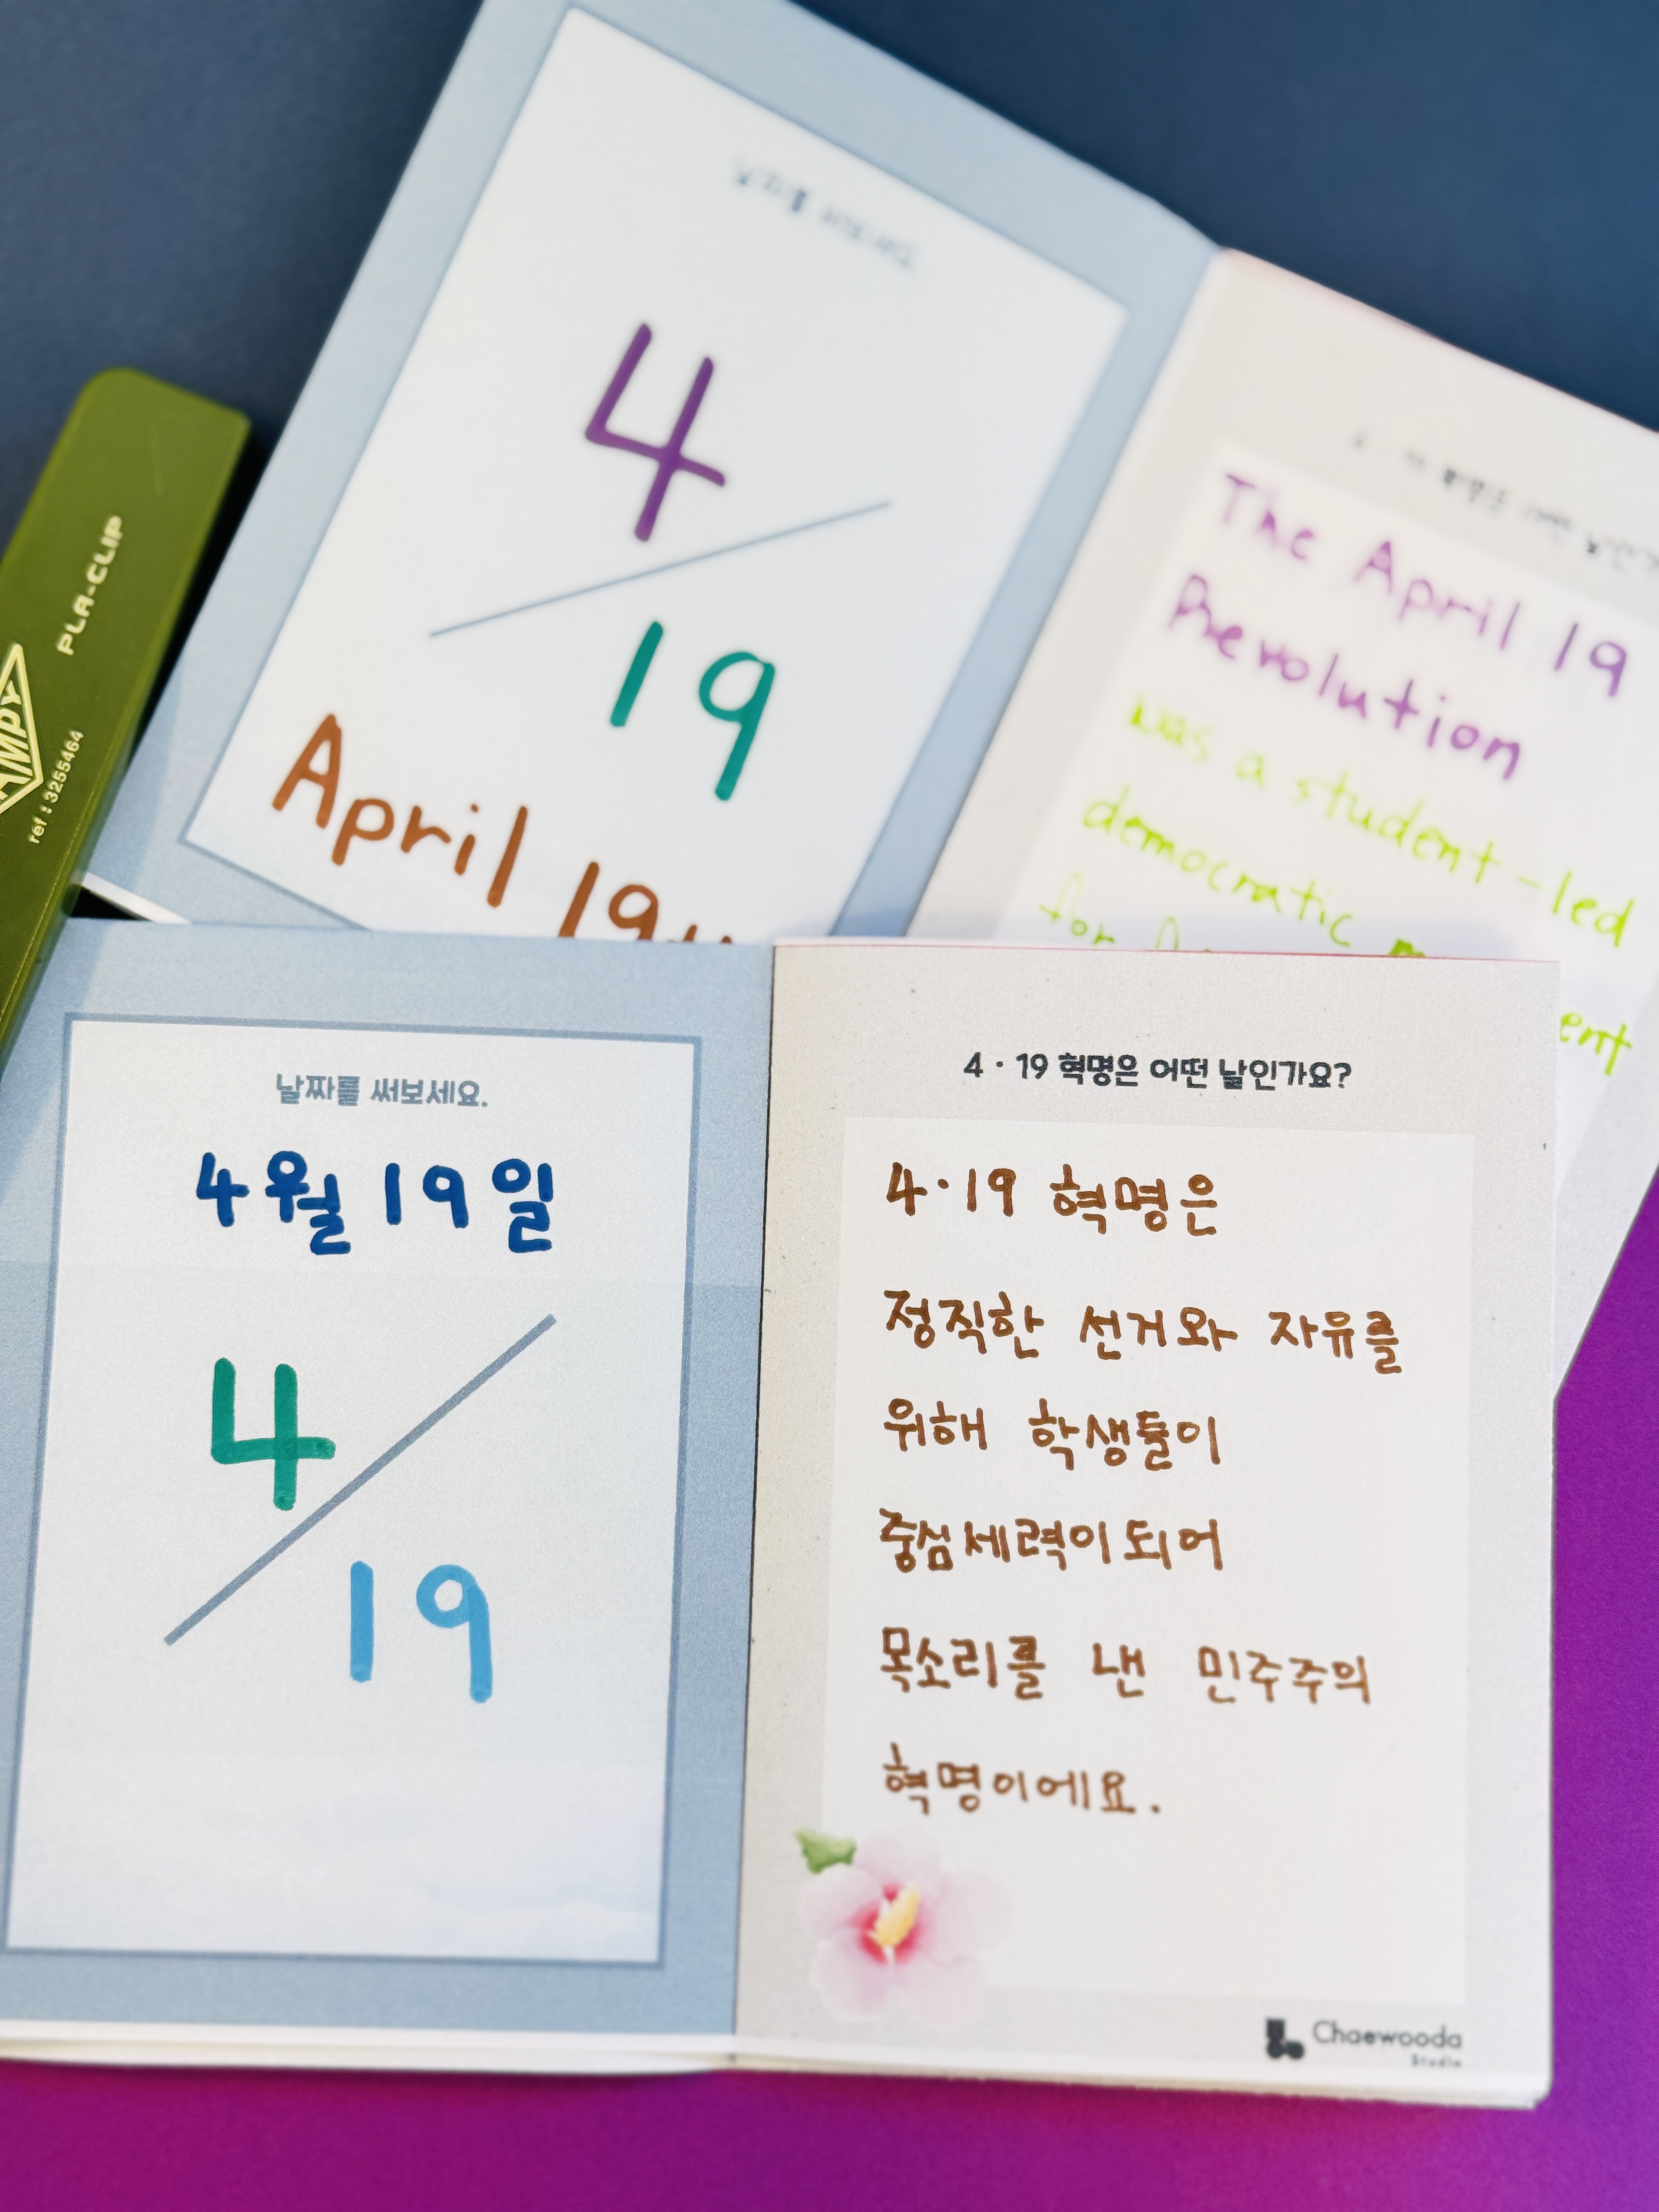 날짜를 써보세요.
4
19
April 19
4 · 19 혁명은 어떤 날인가
The April 19
Revolution
was a student-led
democratic
for
ent
PLA-CLIP
AMPY
ref : 3255464
날짜를 써보세요.
4월 19일
4
19
4 · 19 혁명은 어떤 날인가요?
4·19 혁명은
정직한 선거와 자유를
위해 학생들이
중심세력이 되어
목소리를 낸 민주주의
혁명이에요.
Chaewooda
Studio